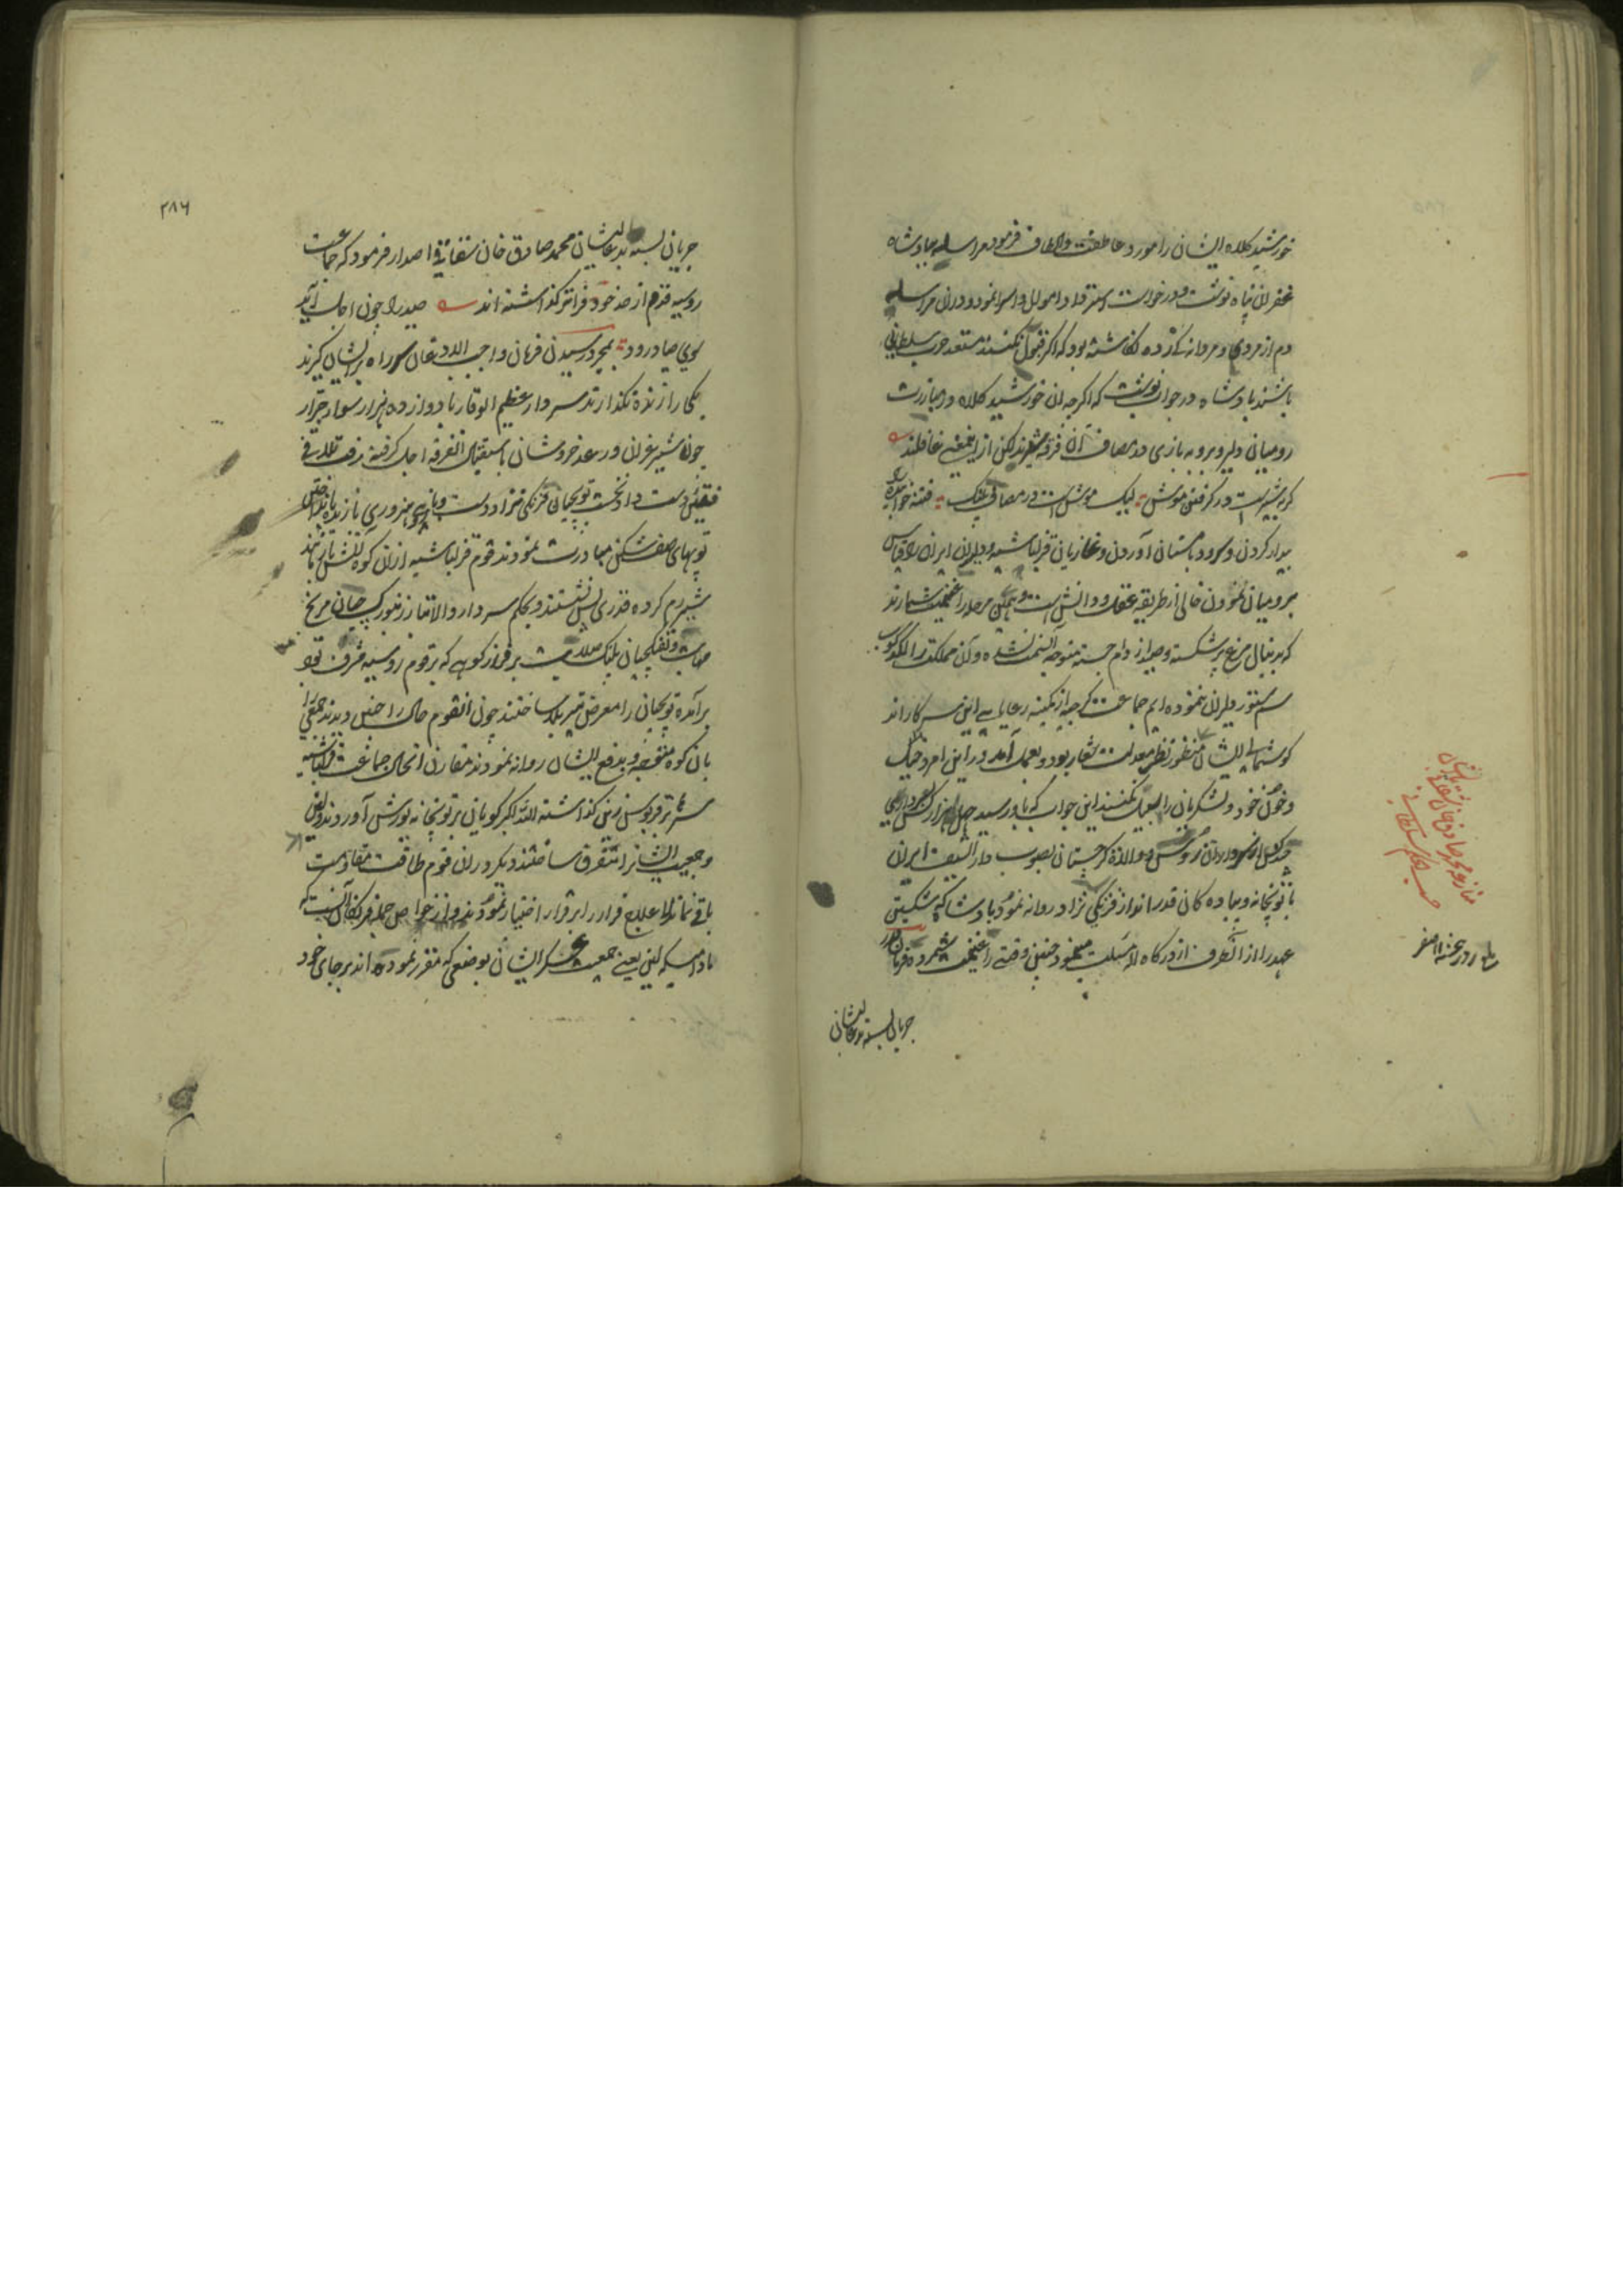 خورشید کلاه ایشان را مورد عاطفت و الطاف فرمود مراسله بپادشاه
غفران پناه نوشت و درخواست استرداد اموال و اسرا نمود و در آن مراسله
دم از مردی و مردانگی زده نگاشته بود که اگر قبول نکنند مستعد حرب سلطانی
باشند پادشاه در جواب نوشت که اگرچه آن خورشید کلاه در مبارزت
رومیان دلیر و بروبه بازی در مصاف آن فرقه شیرند لکن ازین معنی غافلند
گربه شیر است در گرفتن موش لیک موش است در مصاف پلنگ فتنه خوابیده
بیدار کردن و سرود بمستان آوردن و غازیان قزلباشیه و دلیران ایران را قیاس
برومیان نمودن خالی از طریقه عقل و دانش است و همین مرحله را غنیمت شمارند
که بدنبال مرغ پر شکسته و صید از دام جسته متوجه آنسمت نشده و آن مملکت را لگدکوب
سم ستور دلیران ننموده ایم جماعت گرجیه از کمینه رعایای این سرکارند
گوشمالی ایشان منظور نظر معدلت شعار بود و بعمل آمد در این امر دخیل
و خون خود و لشکریان را سبیل نکنند این جواب که باو رسید چهل هزار کس بسرداری
چند کس از سرداران روس و والی زاده گرجستان بصوب دار السیف ایران
با توپخانه و پیاده گان قدر انداز فرنگی نژاد روانه نمود پادشاه که شکستن
عهد را از آنطرف از درگاه اله مسئلت مینمود چنین وقتی را غنیمت شمرده فرمان قدر
جریان بسته بعالیشان
بلغ روز جمعه ۱۱ صفر
منازعه محمد صادق خان شقاقی با ایشان
حسب الحکم سلطانی
۲۸۶
جریان بسته بعالیشان محمد صادق خان شقاقی اصدار فرمود که جماعت
روسیه قدم از حد خود فراتر گذاشته اند صید را چون اجل آید
سوی صیاد رود بمجرد رسیدن فرمان واجب الاذعان سر راه بر ایشان گیرند
یکی را زنده نگذارند سردار عظیم الوقار با دوازده هزار سوار جرار
چون شیر غران و رعد خروشان باستقبال آنفرقه اجل گرفته رفت تلاقی
فئتین دست داد نخست توپچیان فرنگی نژاد دست و بازوی هنروری بازیده بانداختن
توپهای صف شکن مبادرت نمودند قوم قزلباشیه از آن کوه آتش بار مانند
شیر رم کرده قدری پس نشستند و بحکم سردار والاتبار زنبورکچیان مریخ
مهابت و تفنگچیان پلنگ صلابت بر فراز کوهی که بر قوم روسیه مشرف بود
برآمده توپچیان را معرض تیر بلا ساختند چون آنقوم حال را چنین دیدند جمعی را
بآن کوه متوجه و بدفع ایشان روانه نمودند مقارن آنحال جماعت قزلباشیه
سرها بر قربوس زین گذاشته الله اکبر گویان بر توپخانه یورش آوردند و بعضی
و جمعیت ایشانرا متفرق ساختند دیگر در آن قوم طاقت مقاومت
باقی نماند لاعلاج فرار را بر قرار اختیار نمودند و از خواص حیله فرنگان آنست که
مادامیکه لین یعنی جمعیت عسکر ایشان بوضعی که مقرر نموده اند برجای خود